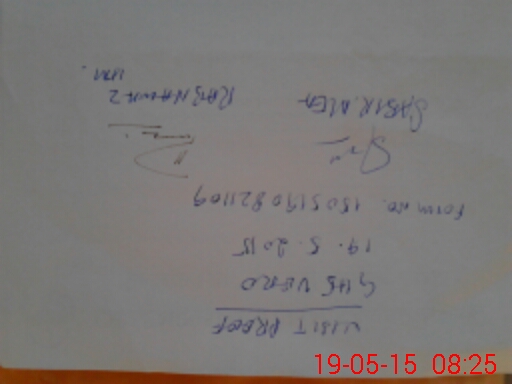 VISIT PROOF
GHS VERO
19.5.2015
Form no. 150519082109
SABIR.ALI
19-05-15 08:25